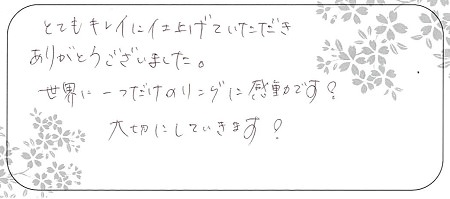 とてもキレイに仕上げていただき
ありがとうございました。
世界に一つだけのリングに感動です?
大切にしていきます?